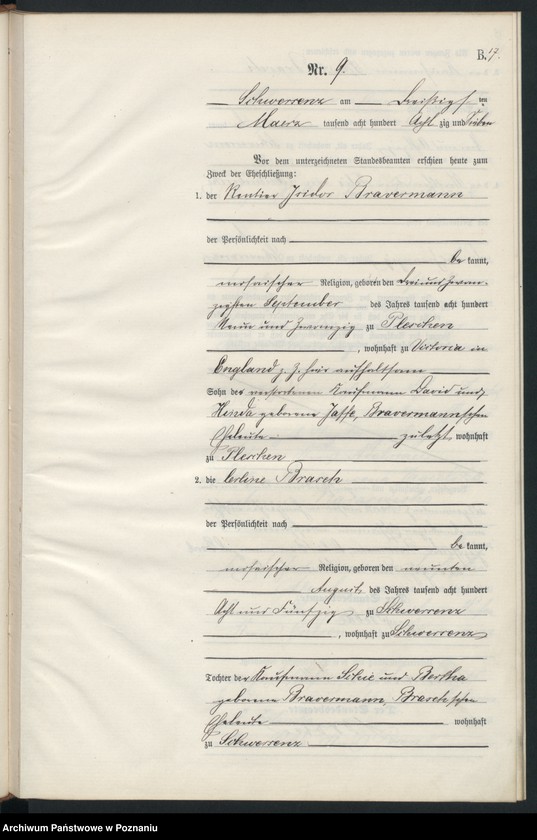 B. 17.
Nr. 9.
Schwersenz am Dreißigsten
Maerz tausend acht hundert Acht zig und Sieben
Vor dem unterzeichneten Standesbeamten erschien heute zum
Zweck der Eheschließung:
1. der Rentier Isidor Bravermann
der Persönlichkeit nach
be kannt,
mosaischer Religion, geboren den drei und zwan-
zigsten September des Jahres tausend acht hundert
Neun und Zwanzig zu Pleschen
, wohnhaft zu Victoria in
England z. Z. hier aufhaltsam
Sohn des verstorbenen Kaufmann David und
Hinda geborene Jaffe, Bravermannschen
Eheleute zuletzt wohnhaft
zu Pleschen
2. die Brasch
der Persönlichkeit nach
be kannt,
mosaischer Religion, geboren den neunten
August des Jahres tausend acht hundert
Acht und Fünfzig zu Schwersenz
, wohnhaft zu Schwersenz
Tochter der Kaufmann und Bertha
geborene Bravermann, Braschschen
Eheleute wohnhaft
zu Schwersenz
Archiwum Państwowe w Poznaniu